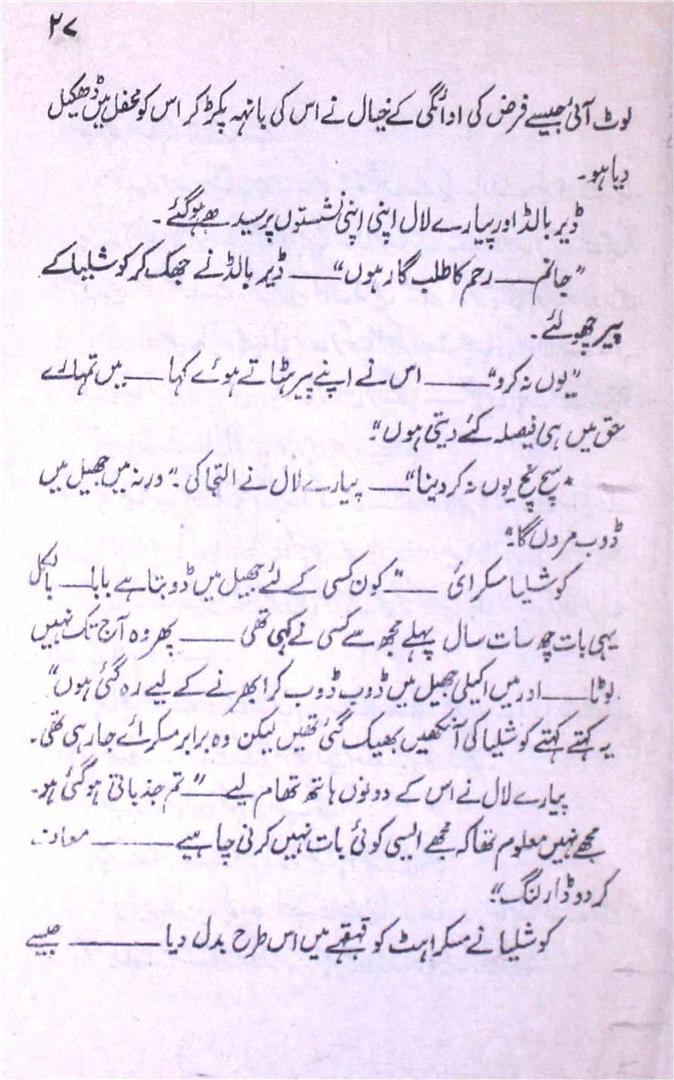 ۲۷
لوٹ آئی جیسے فرض کی ادائگی کے خیال نے اس کی بانہہ پکڑ کر اس کو محفل میں ڈھکیل
دیا ہو۔
ڈیر بالڈ اور پیارے لال اپنی اپنی نشستوں پر سیدھے ہو گئے۔
”خانم ــــ رحم کا طلب گار ہوں“ ــــ ڈیر بالڈ نے جھک کر کوشلیا کے
پیر چھو لئے۔
”یوں نہ کرو“ ــــ اس نے اپنے پیر ہٹاتے ہوئے کہا ــــ میں تمہارے
حق میں ہی فیصلہ کئے دیتی ہوں“۔
”سچ مچ یوں نہ کر دینا“ ــــ پیارے لال نے التجا کی۔ ”ورنہ میں جھیل میں
ڈوب مروں گا“۔
کوشلیا مسکرائی ــــ ”کون کسی کے لئے جھیل میں ڈوبتا ہے بابا ــــ بالکل
یہی بات چھ سات سال پہلے مجھ سے کسی نے کہی تھی ــــ پھر وہ آج تک نہیں
لوٹا ــــ اور میں اکیلی جھیل میں ڈوب ڈوب کر ابھرنے کے لیے رہ گئی ہوں“
یہ کہتے کہتے کوشلیا کی آنکھیں بھیگ گئی تھیں لیکن وہ برابر مسکرائے جا رہی تھی۔
پیارے لال نے اس کے دونوں ہاتھ تھام لیے ــــ ”تم جذباتی ہو گئی ہو۔
مجھے نہیں معلوم تھا کہ مجھے ایسی کوئی بات نہیں کرنی چاہیے ــــ معاف
کر دو ڈارلنگ“۔
کوشلیا نے مسکراہٹ کو قہقہے میں اس طرح بدل دیا ــــ جیسے